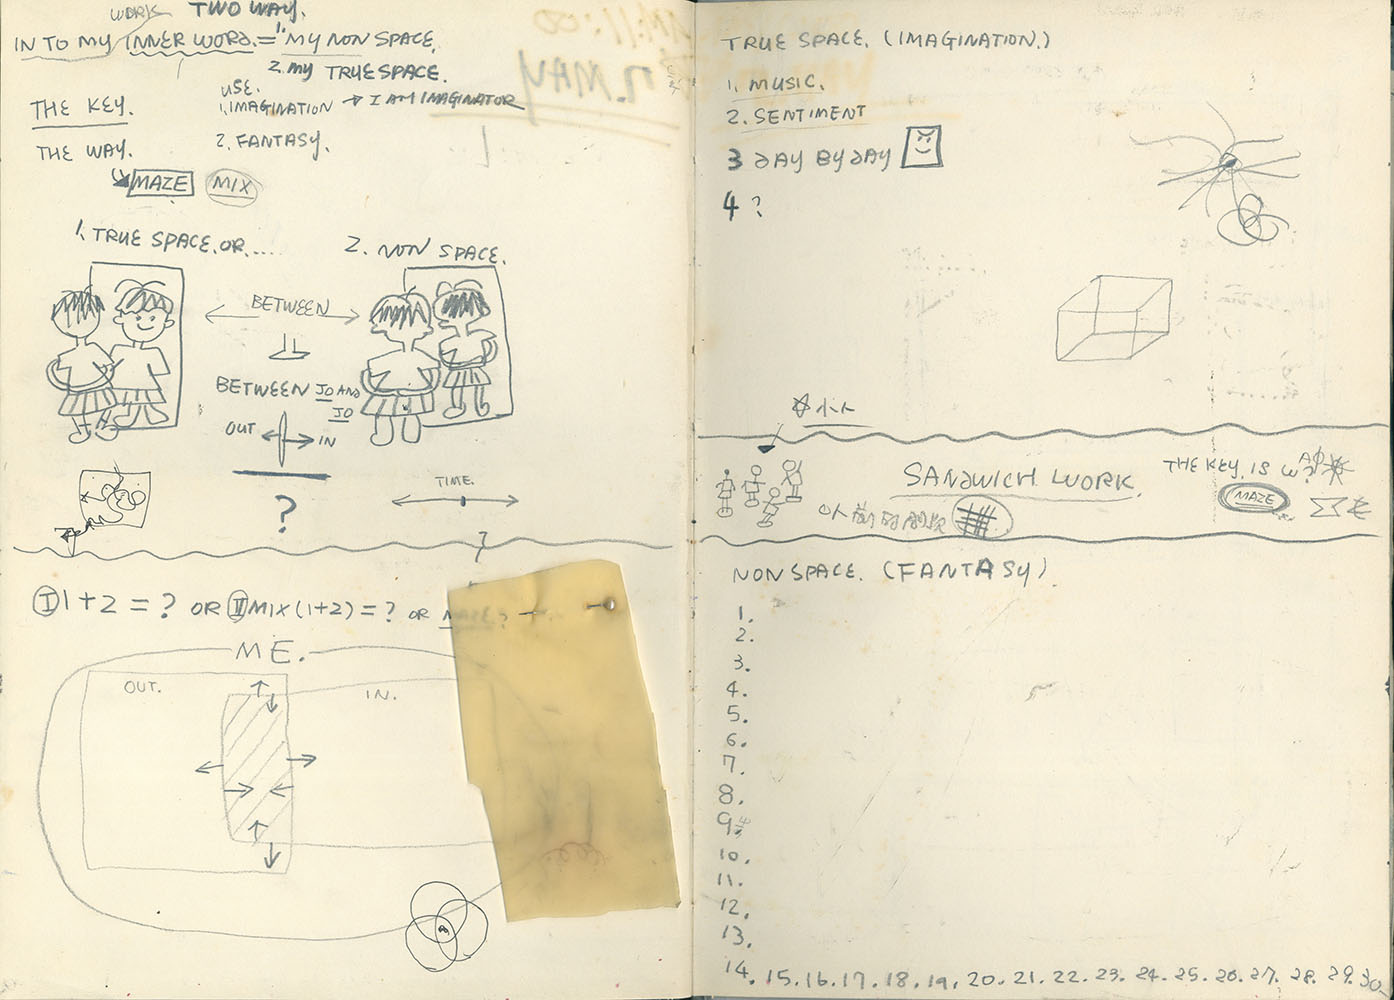 WORK TWO WAY.
IN TO MY INNER WORD. = 1. MY NON SPACE.
2. MY TRUE SPACE.
USE.
THE KEY. 1. IMAGINATION → I AM IMAGINATOR
THE WAY. 2. FANTASY.
MAZE MIX
1. TRUE SPACE. OR..... 2. NON SPACE.
BETWEEN
BETWEEN JO AND
JO
OUT IN
TIME.
?
?
Ⅰ 1+2=? OR Ⅱ MIX(1+2)=? OR MAZE?
ME.
OUT. IN.
AM:11:00
17. MAY
TRUE SPACE. (IMAGINATION.)
1. MUSIC.
2. SENTIMENT
3 DAY BY DAY
4 ?
小人
SANDWICH WORK.
THE KEY. IS W?
MAZE
NON SPACE. (FANTASY).
1.
2.
3.
4.
5.
6.
7.
8.
9.
10.
11.
12.
13.
14. 15. 16. 17. 18. 19. 20. 21. 22. 23. 24. 25. 26. 27. 28. 29. 30.